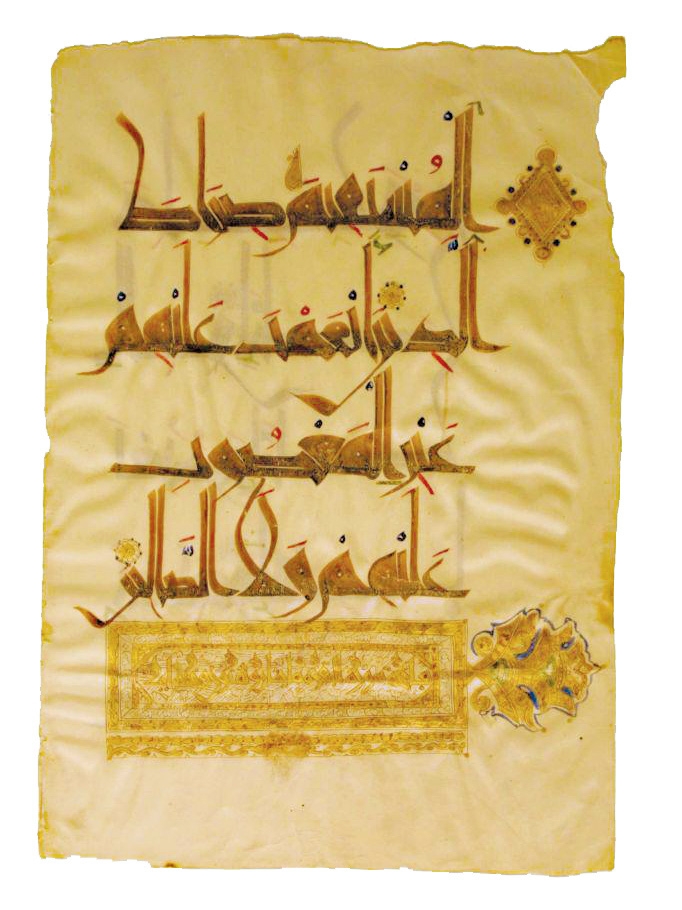 المُسْتَقِيمَ صِرَاطَ
الَّذِينَ أَنْعَمْتَ عَلَيْهِمْ
غَيْرِ الْمَغْضُوبِ
عَلَيْهِمْ وَلَا الضَّالِّينَ